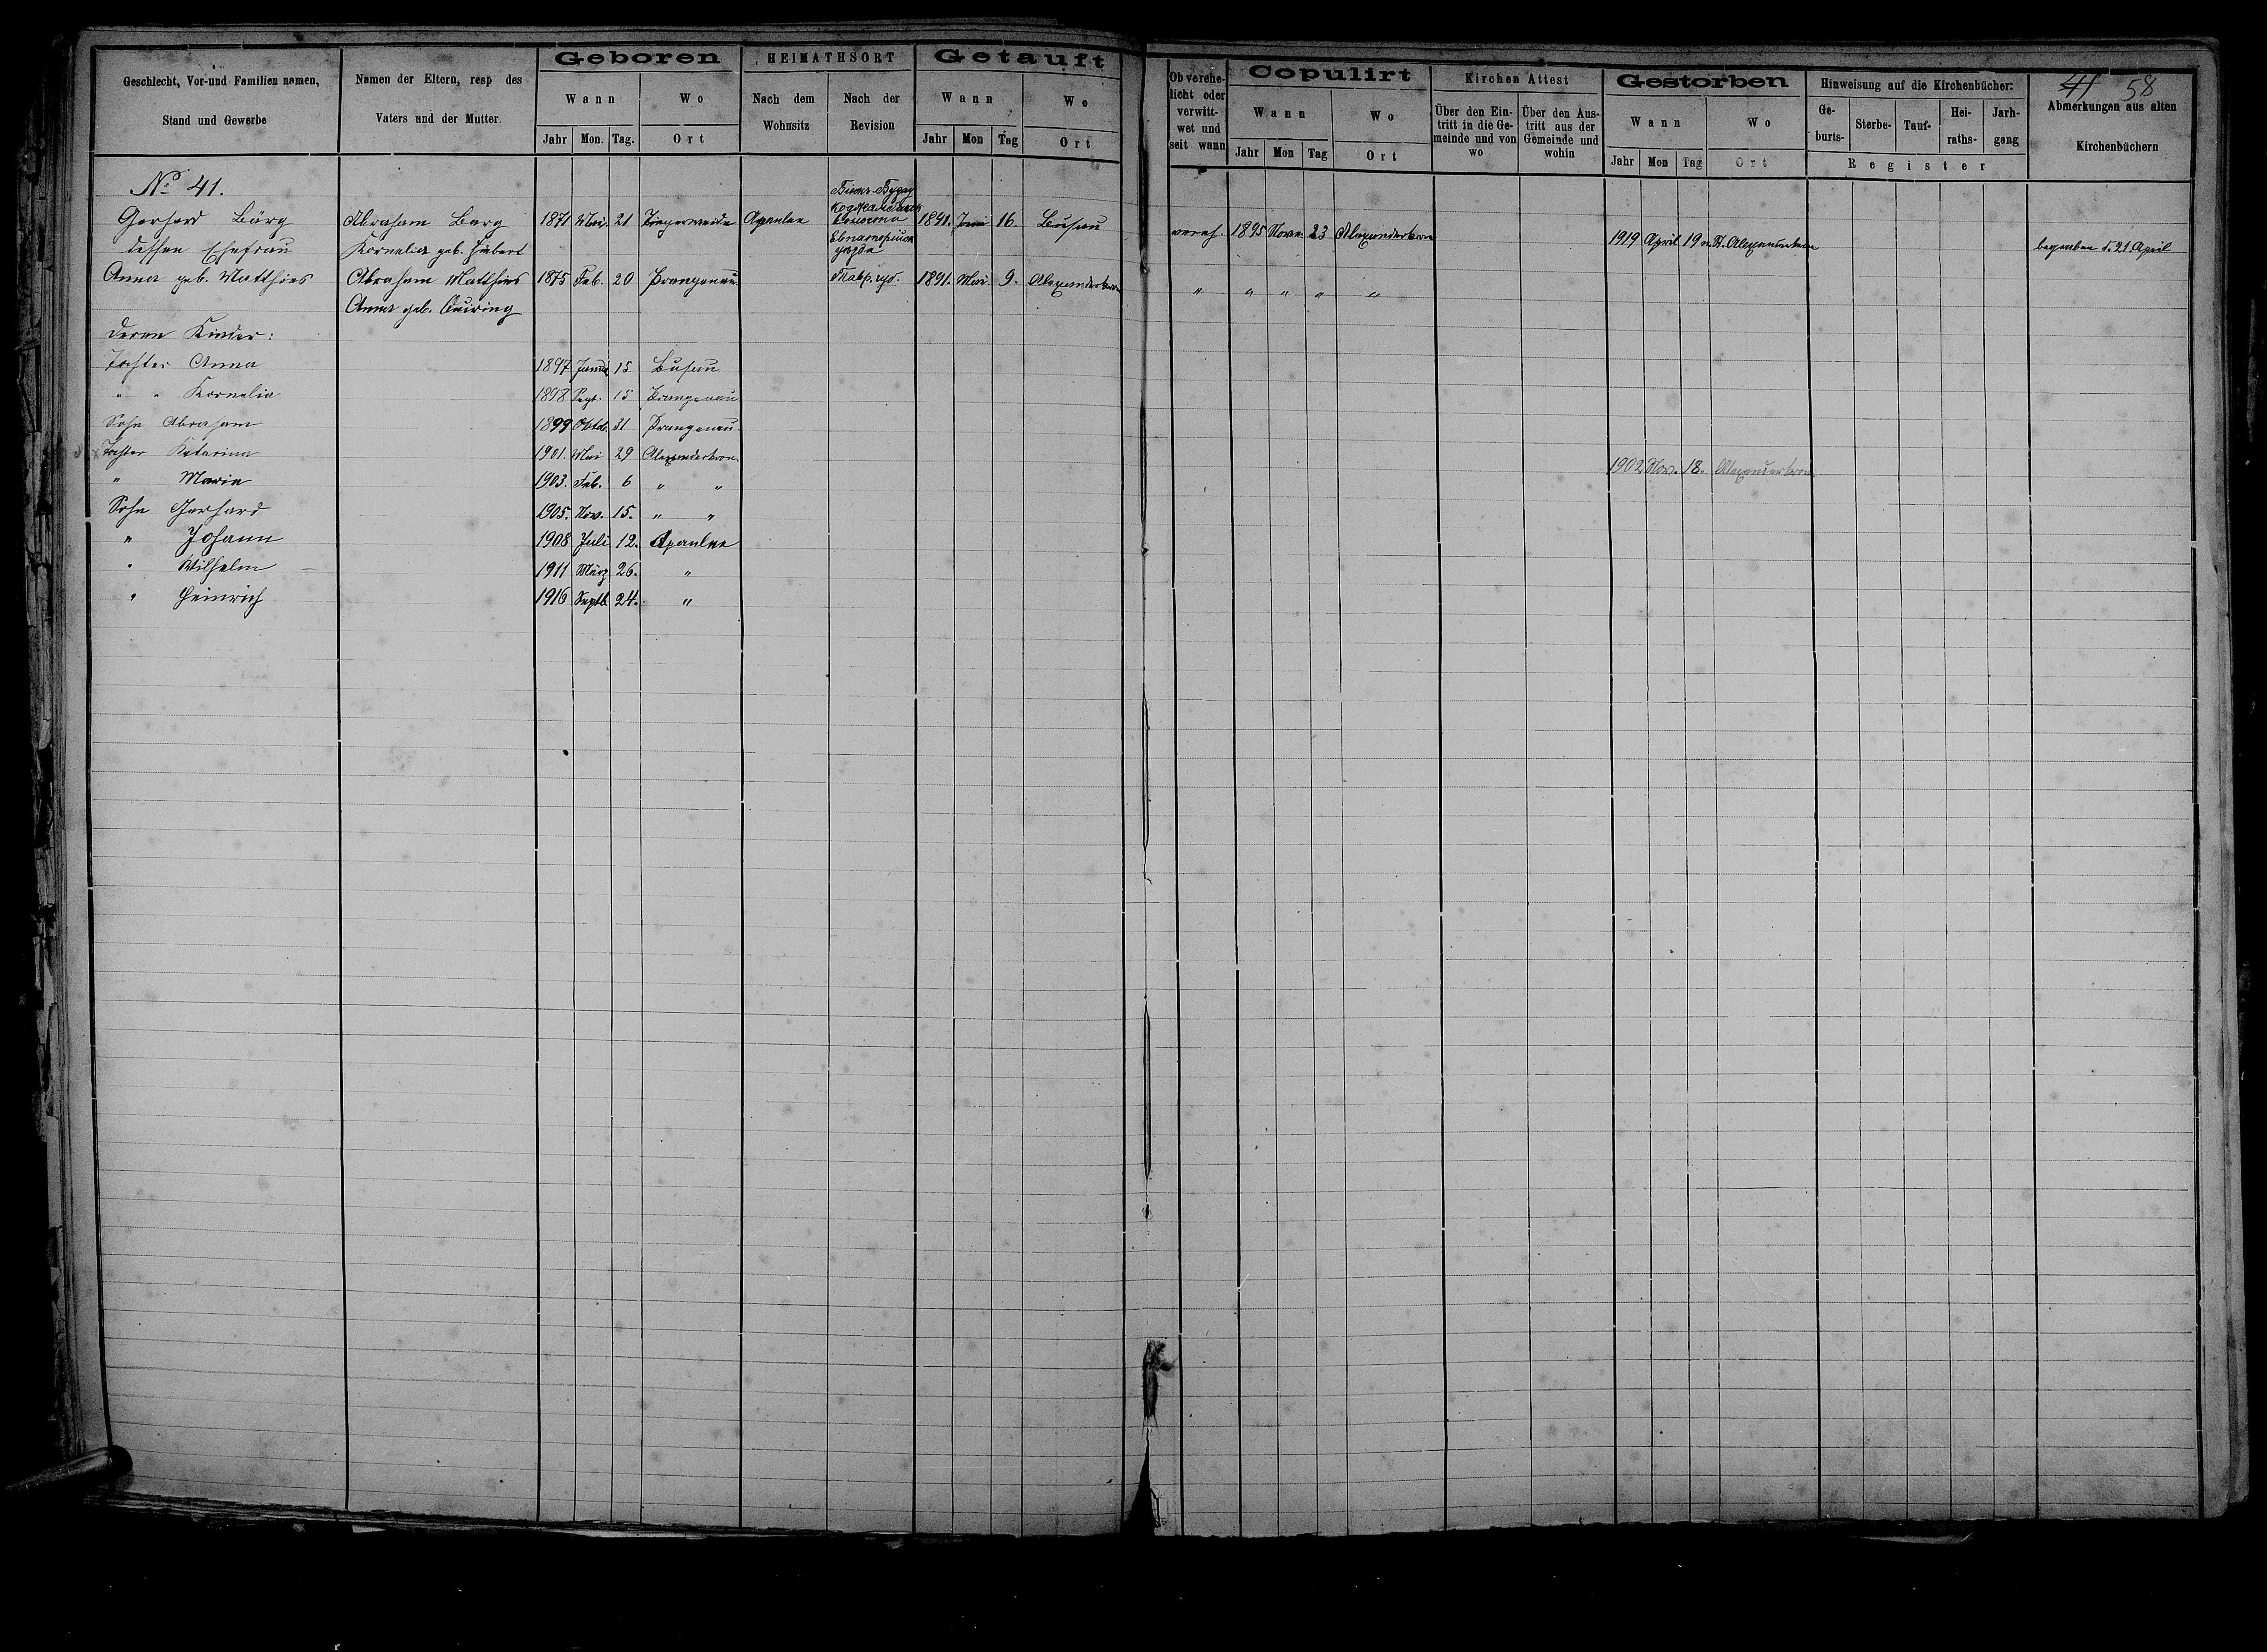 Geschlecht, Vor-und Familien namen,
Stand und Gewerbe
Namen der Eltern, resp des
Vaters und der Mutter.
Geboren
Wann
Wo
Jahr Mon. Tag. Ort
HEIMATHSORT
Nach dem
Wohnsitz
Nach der
Revision
Getauft
Wann
Wo
Jahr Mon Tag Ort
Ob verehe-
licht oder
verwitt-
wet und
seit wann
Copulirt
Wann
Wo
Jahr Mon Tag Ort
Kirchen Attest
Über den Ein-
tritt in die Ge-
meinde und von
wo
Über den Aus-
tritt aus der
Gemeinde und
wohin
Gestorben
Wann
Wo
Jahr Mon Tag Ort
Hinweisung auf die Kirchenbücher:
Ge-
burts-
Sterbe-
Tauf-
Hei-
raths-
Jarh-
gang
Register
41 58
Abmerkungen aus alten
Kirchenbüchern
No 41.
Gerhard Bärg Abraham Barg 1871 Mai 21 Apanlee 1891. Juni 16. Busau vereh. 1895 Nov. 23 Alexanderkron 1919 April 19 Alexanderkron begraben d. 21 April
dessen Ehefrau Kornelia geb. Hiebert
Евпаторійск
уѣзда
Anna geb. Matthies Abraham Matthies 1875 Feb. 20 Prangenau. Тавр. губ. 1891. Mai. 9. Alexanderkron " " " " "
Anna geb. Quiring
deren Kinder:
Tochter Anna 1897 Januar 15 Busau
" " Kornelia 1898 Sept. 15 Prangenau
Sohn Abraham 1899 Oktob. 31 Prangenau.
Tochter Katarina 1901. Mai 29 Alexanderkron. 1902 Nov. 18. Alexanderkron
" Maria 1903. Feb. 6 " "
Sohn Gerhard 1905. Nov. 15. " "
" Johann 1908 Juli 12. Apanlee
" Wilhelm 1911 März 26. "
" Heinrich 1916 Septb. 24. "